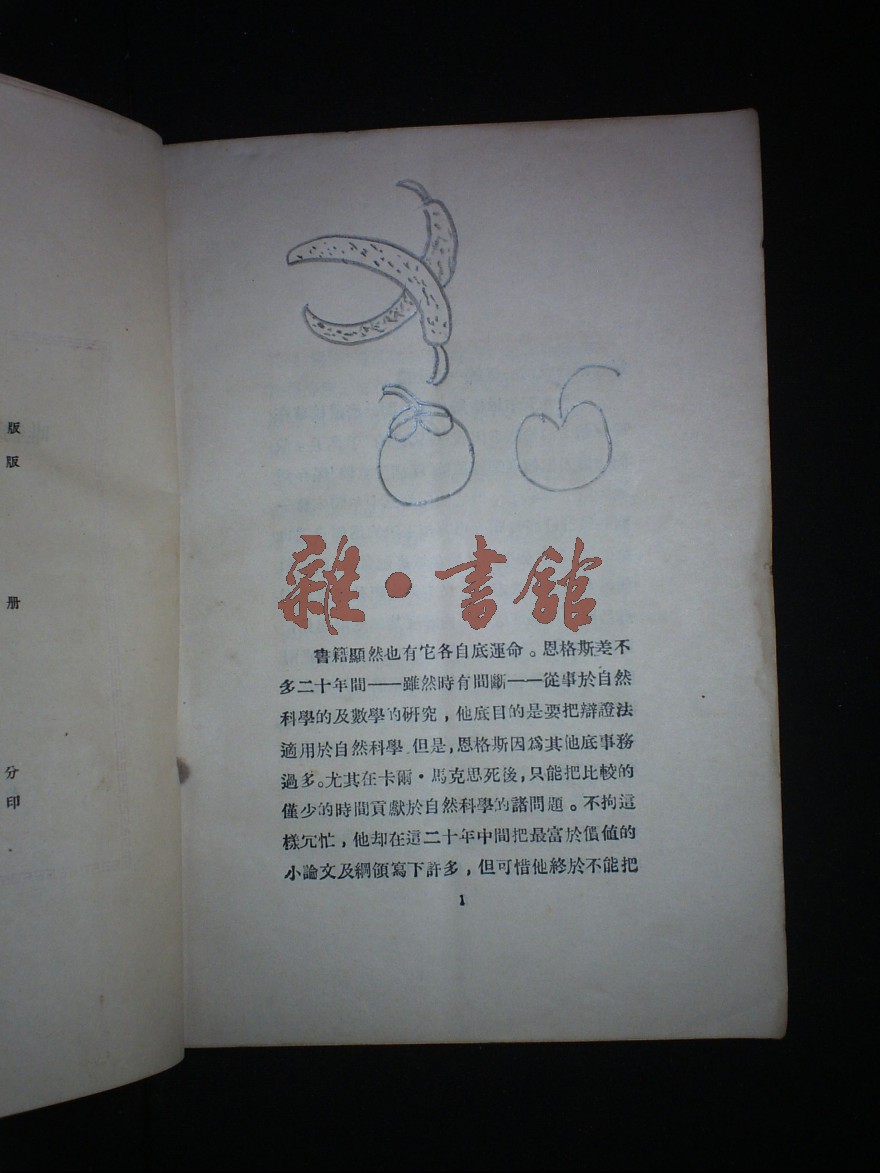 版
版
册
分
印
雜·書館
書籍顯然也有它各自底運命。恩格斯差不
多二十年間——雖然時有間斷——從事於自然
科學的及數學的研究，他底目的是要把辯證法
適用於自然科學.但是，恩格斯因爲其他底事務
過多。尤其在卡爾·馬克思死後，只能把比較的
僅少的時間貢獻於自然科學的諸問題。不拘這
樣冗忙，他却在這二十年中間把最富於價値的
小論文及綱領寫下許多，但可惜他終於不能把
1